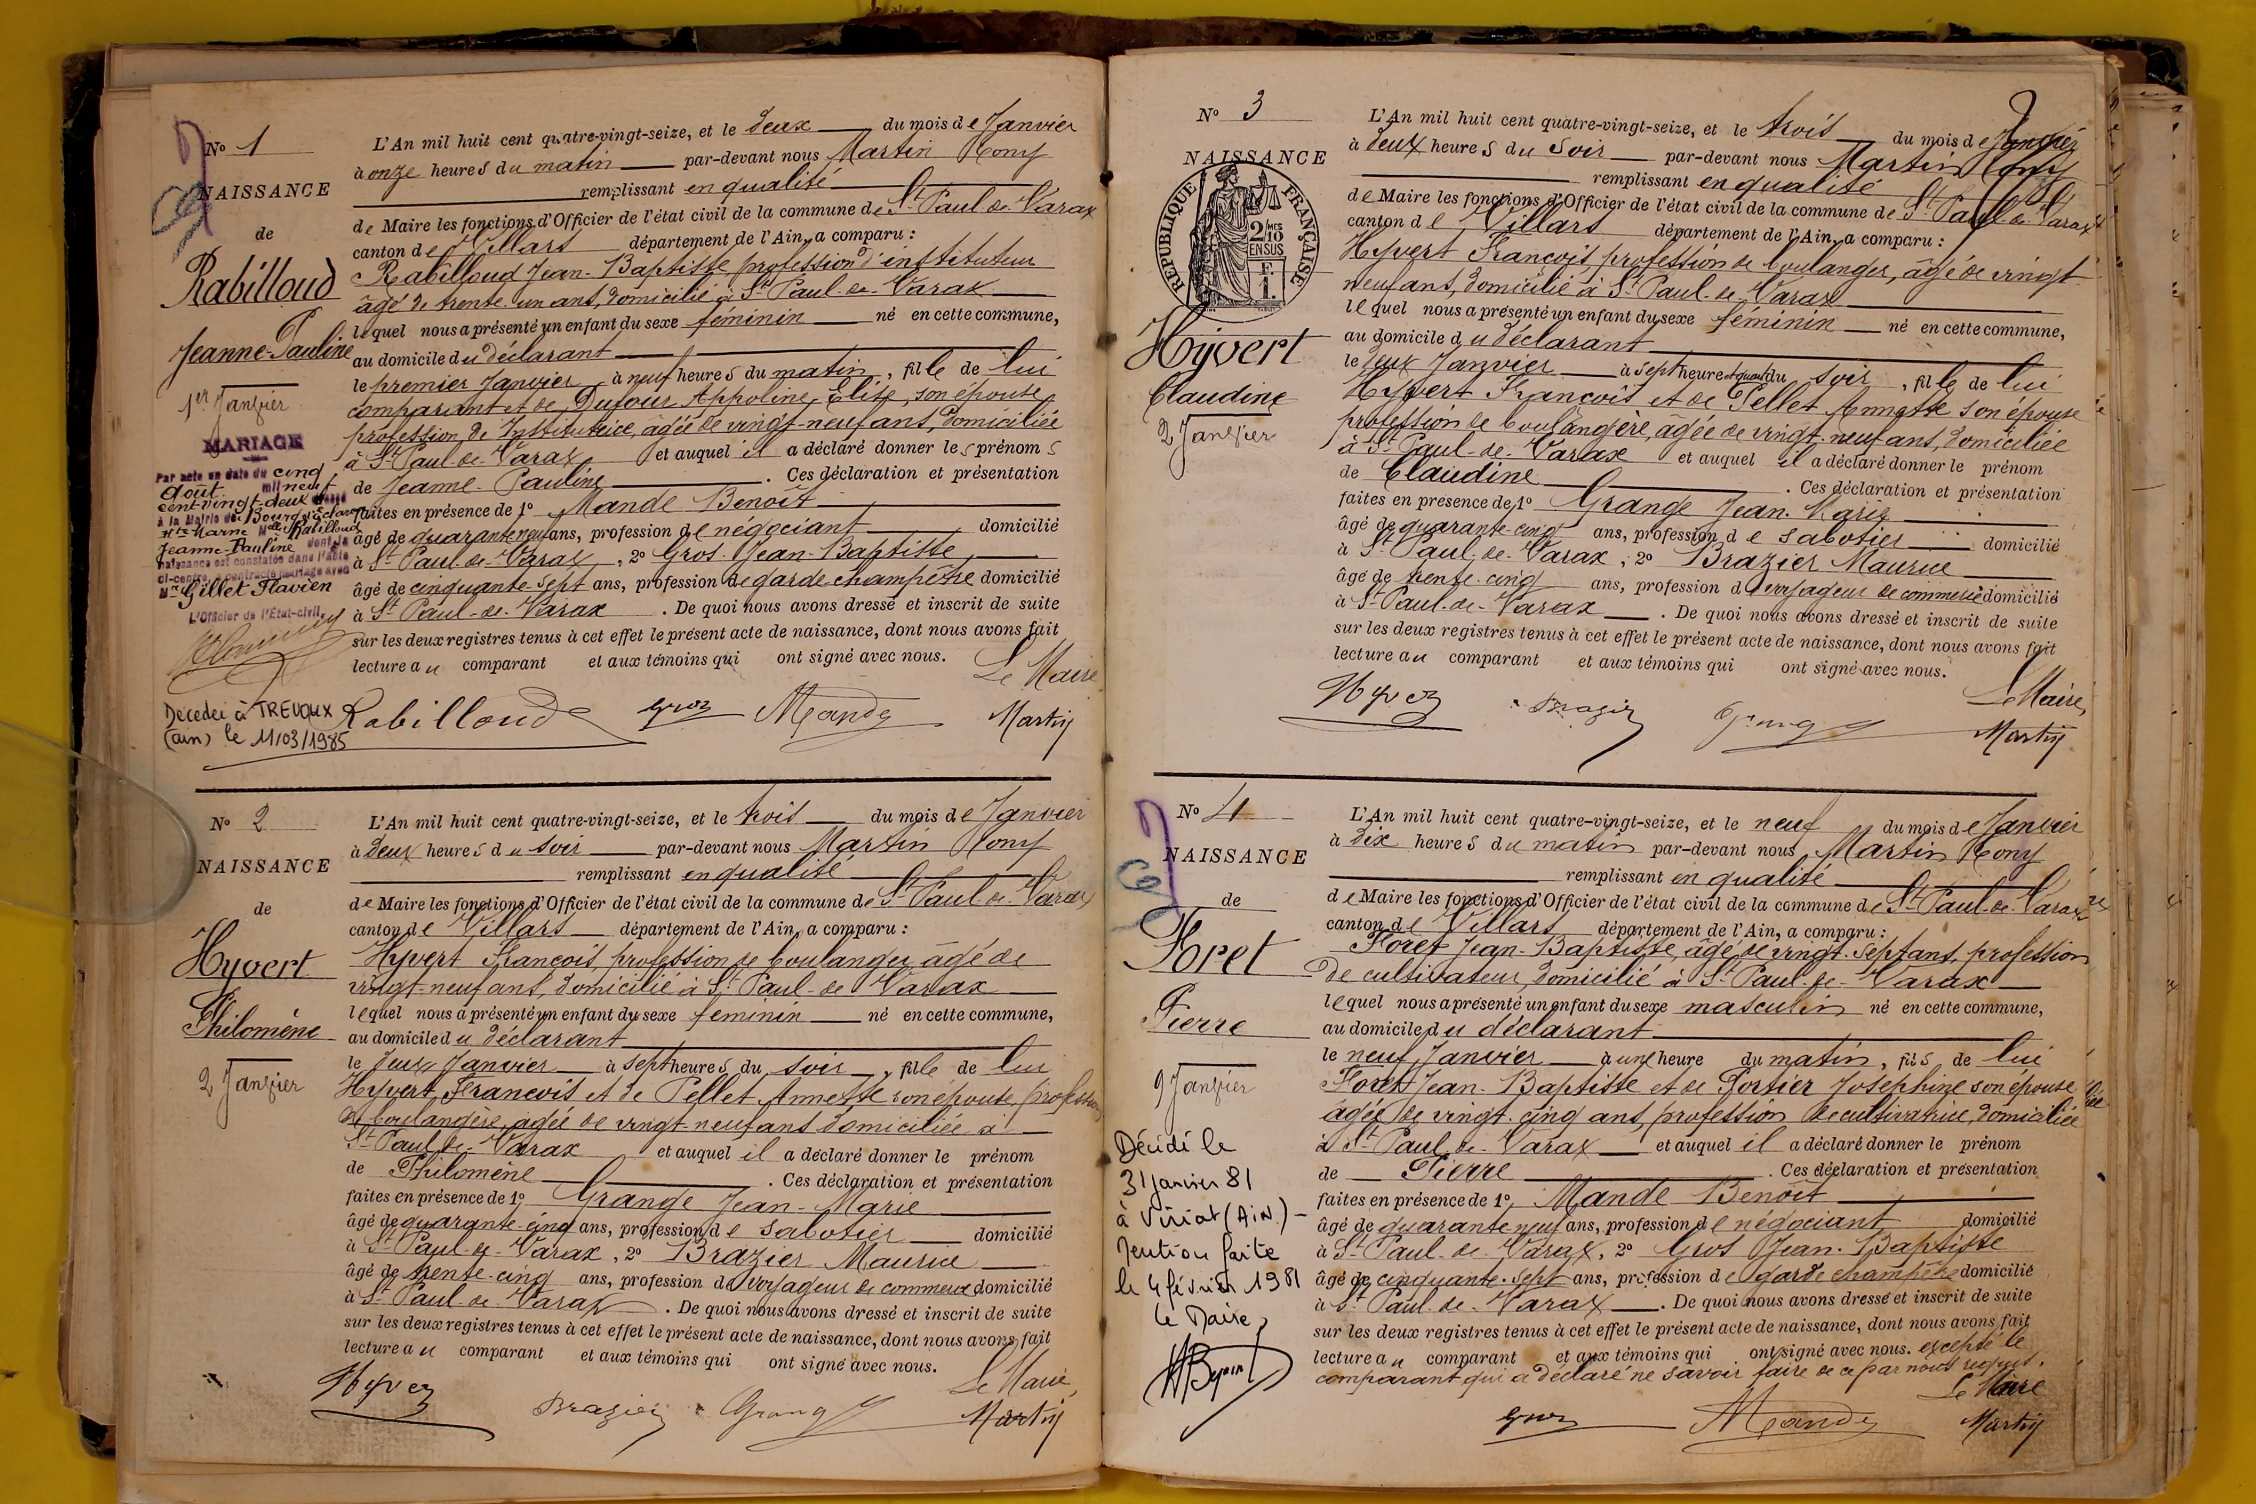 No 1
NAISSANCE
de
Rabilloud
Jeanne-Pauline
1er Janvier
MARIAGE
Par acte en date du cinq
août mil neuf
cent vingt-deux dressé
à la Mairie de Bourg d'Eclaron
Hte Marne Mlle Rabilloud
Jeanne-Pauline dont la
naissance est constatée dans l'acte
ci-contre a contracté mariage avec
Mr Gillet Flavien
L'Officier de l'État-civil,
Décédée à TREVOUX
(ain) le 11/03/1985
L'An mil huit cent quatre-vingt-seize, et le deux du mois de Janvier
à onze heures du matin par-devant nous Martin Rony
remplissant en qualité
de Maire les fonctions d'Officier de l'état civil de la commune de St Paul de Varax
canton de Villars département de l'Ain, a comparu :
Rabilloud Jean-Baptiste profession d'instituteur
âgé de trente-un ans, domicilié à St Paul-de-Varax
lequel nous a présenté un enfant du sexe féminin né en cette commune,
au domicile du déclarant
le premier Janvier à neuf heures du matin, fille de lui
comparant et de Dufour Appoline Elise, son épouse
profession de Institutrice, âgée de vingt-neuf ans, domiciliée
à St Paul-de-Varax et auquel il a déclaré donner les prénoms
de Jeanne-Pauline . Ces déclaration et présentation
faites en présence de 1º Mande Benoît
âgé de quarante neuf ans, profession de négociant domicilié
à St Paul-de-Varax, 2º Gros Jean-Baptiste
âgé de cinquante sept ans, profession de garde champêtre domicilié
à St Paul-de-Varax . De quoi nous avons dressé et inscrit de suite
sur les deux registres tenus à cet effet le présent acte de naissance, dont nous avons fait
lecture au comparant et aux témoins qui ont signé avec nous.
Le Maire
Rabilloud Gros Mande Martin
No 2
NAISSANCE
de
Hyvert
Philomène
2 Janvier
L'An mil huit cent quatre-vingt-seize, et le trois du mois de Janvier
à deux heures du soir par-devant nous Martin Rony
remplissant en qualité
de Maire les fonctions d'Officier de l'état civil de la commune de St Paul de Varax
canton de Villars département de l'Ain, a comparu :
Hyvert François, profession de boulanger, âgé de
vingt-neuf ans, domicilié à St Paul-de Varax
lequel nous a présenté un enfant du sexe féminin né en cette commune,
au domicile du déclarant
le deux Janvier à sept heures du soir, fille de lui
Hyvert François et de Pellet Annette son épouse, profession
de boulangère, âgée de vingt-neuf ans domiciliée à
St Paul-de-Varax et auquel il a déclaré donner le prénom
de Philomène . Ces déclaration et présentation
faites en présence de 1º Grange Jean-Marie
âgé de quarante-cinq ans, profession de sabotier domicilié
à St Paul-de-Varax, 2º Brazier Maurice
âgé de trente-cinq ans, profession de voyageur de commerce domicilié
à St Paul-de-Varax . De quoi nous avons dressé et inscrit de suite
sur les deux registres tenus à cet effet le présent acte de naissance, dont nous avons fait
lecture au comparant et aux témoins qui ont signé avec nous.
Le Maire,
Hyver Brazier Grange Martin
No 3
NAISSANCE
RÉPUBLIQUE FRANÇAISE
2/10 MES
EN SUS
1 F.
Hyvert
Claudine
2 Janvier
L'An mil huit cent quatre-vingt-seize, et le trois du mois de Janvier
à deux heures du soir par-devant nous Martin Rony
remplissant en qualité
de Maire les fonctions d'Officier de l'état civil de la commune de St Paul de Varax
canton de Villars département de l'Ain, a comparu :
Hyvert François, profession de boulanger, âgé de vingt
neuf ans, domicilié à St Paul-de-Varax
lequel nous a présenté un enfant du sexe féminin né en cette commune,
au domicile du déclarant
le deux Janvier à sept heures et quart du soir, fille de lui
Hyvert François et de Pellet Annette son épouse
profession de boulangère, âgée de vingt-neuf ans, domiciliée
à St Paul-de-Varax et auquel il a déclaré donner le prénom
de Claudine . Ces déclaration et présentation
faites en présence de 1º Grange Jean-Marie
âgé de quarante-cinq ans, profession de sabotier domicilié
à St Paul-de-Varax, 2º Brazier Maurice
âgé de trente-cinq ans, profession de voyageur de commerce domicilié
à St Paul-de-Varax . De quoi nous avons dressé et inscrit de suite
sur les deux registres tenus à cet effet le présent acte de naissance, dont nous avons fait
lecture au comparant et aux témoins qui ont signé avec nous.
Le Maire,
Hyver Brazier Grange Martin
No 4
NAISSANCE
de
Foret
Pierre
9 Janvier
Décédé le
31 janvier 81
à Viriat (AiN) -
Mention faite
le 4 février 1981
Le Maire,
L'An mil huit cent quatre-vingt-seize, et le neuf du mois de Janvier
à dix heures du matin par-devant nous Martin Rony
remplissant en qualité
de Maire les fonctions d'Officier de l'état civil de la commune de St Paul-de-Varax
canton de Villars département de l'Ain, a comparu :
Foret Jean-Baptiste, âgé de vingt-sept ans, profession
de cultivateur, domicilié à St Paul-de-Varax
lequel nous a présenté un enfant du sexe masculin né en cette commune,
au domicile du déclarant
le neuf Janvier à une heure du matin, fils de lui
Foret Jean-Baptiste et de Portier Joséphine son épouse
âgée de vingt-cinq ans, profession de cultivatrice, domiciliée
à St Paul-de-Varax et auquel il a déclaré donner le prénom
de Pierre . Ces déclaration et présentation
faites en présence de 1º, Mande Benoît
âgé de quarante neuf ans, profession de négociant domicilié
à St Paul-de-Varax, 2º Gros Jean-Baptiste
âgé de cinquante-sept ans, profession de garde champêtre domicilié
à St Paul-de-Varax . De quoi nous avons dressé et inscrit de suite
sur les deux registres tenus à cet effet le présent acte de naissance, dont nous avons fait
lecture au comparant et aux témoins qui ont signé avec nous. excepté le
comparant qui a déclaré ne savoir faire de ce par nous requit.
Le Maire
Gros Mande Martin